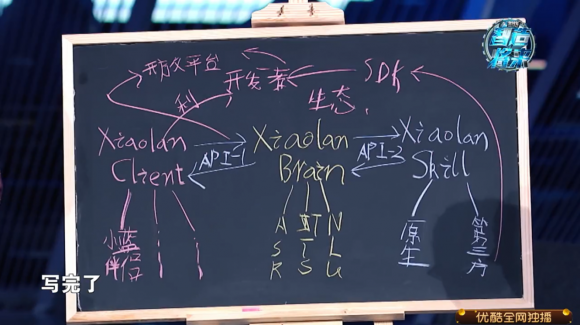 智造将来
开放平台
开发者
SDK
利
生态.
Xiaolan
Client
API-1
Xiaolan
Brain
API-2
Xiaolan
Skill
小蓝
伴侣
ASR
TTS
NLU
原生
第三方
写完了
优酷全网独播